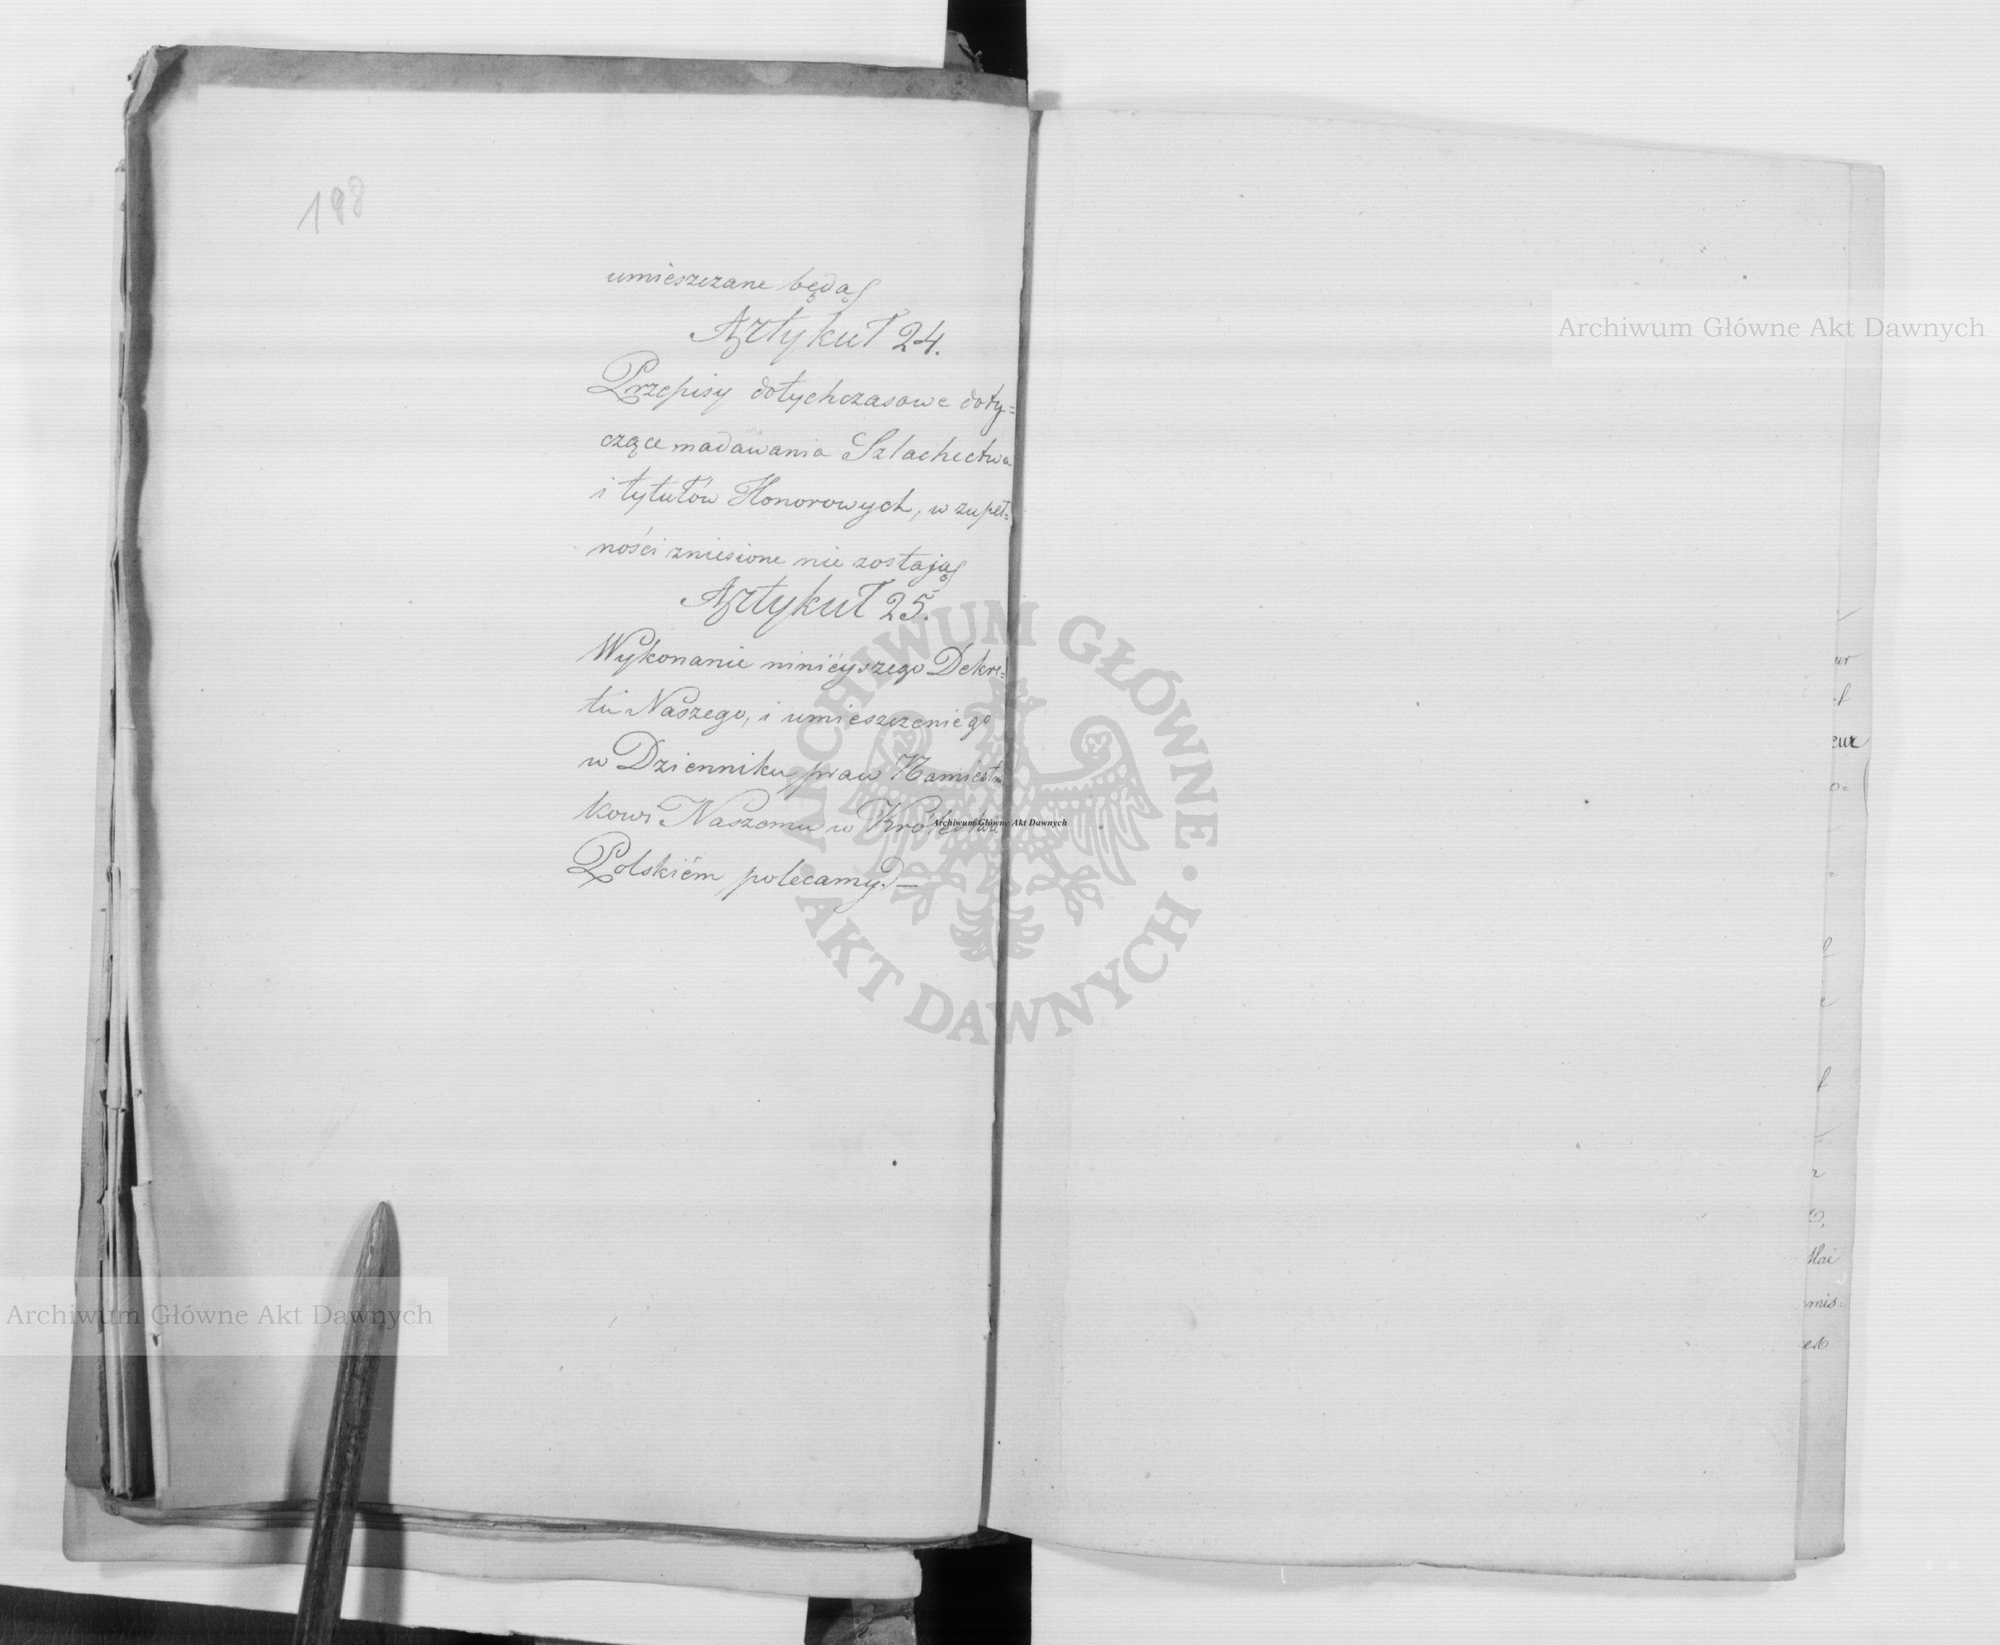 198
umieszczane będą
Artykuł 24.
Przepisy dotychczasowe doty=
czące nadawania Szlachectwa
i tytułów Honorowych, w zupeł=
ności zniesione nie zostają
Artykuł 25.
Wykonanie niniéyszego Dekre=
tu Naszego, i umieszczenie go
w Dzienniku praw Namiestni
kowi Naszemu w Królestwie
Polskiém polecamy. —
Archiwum Główne Akt Dawnych
Archiwum Główne Akt Dawnych
Archiwum Główne Akt Dawnych
ARCHIWUM GŁÓWNE · AKT DAWNYCH ·
ur
eur
mis=